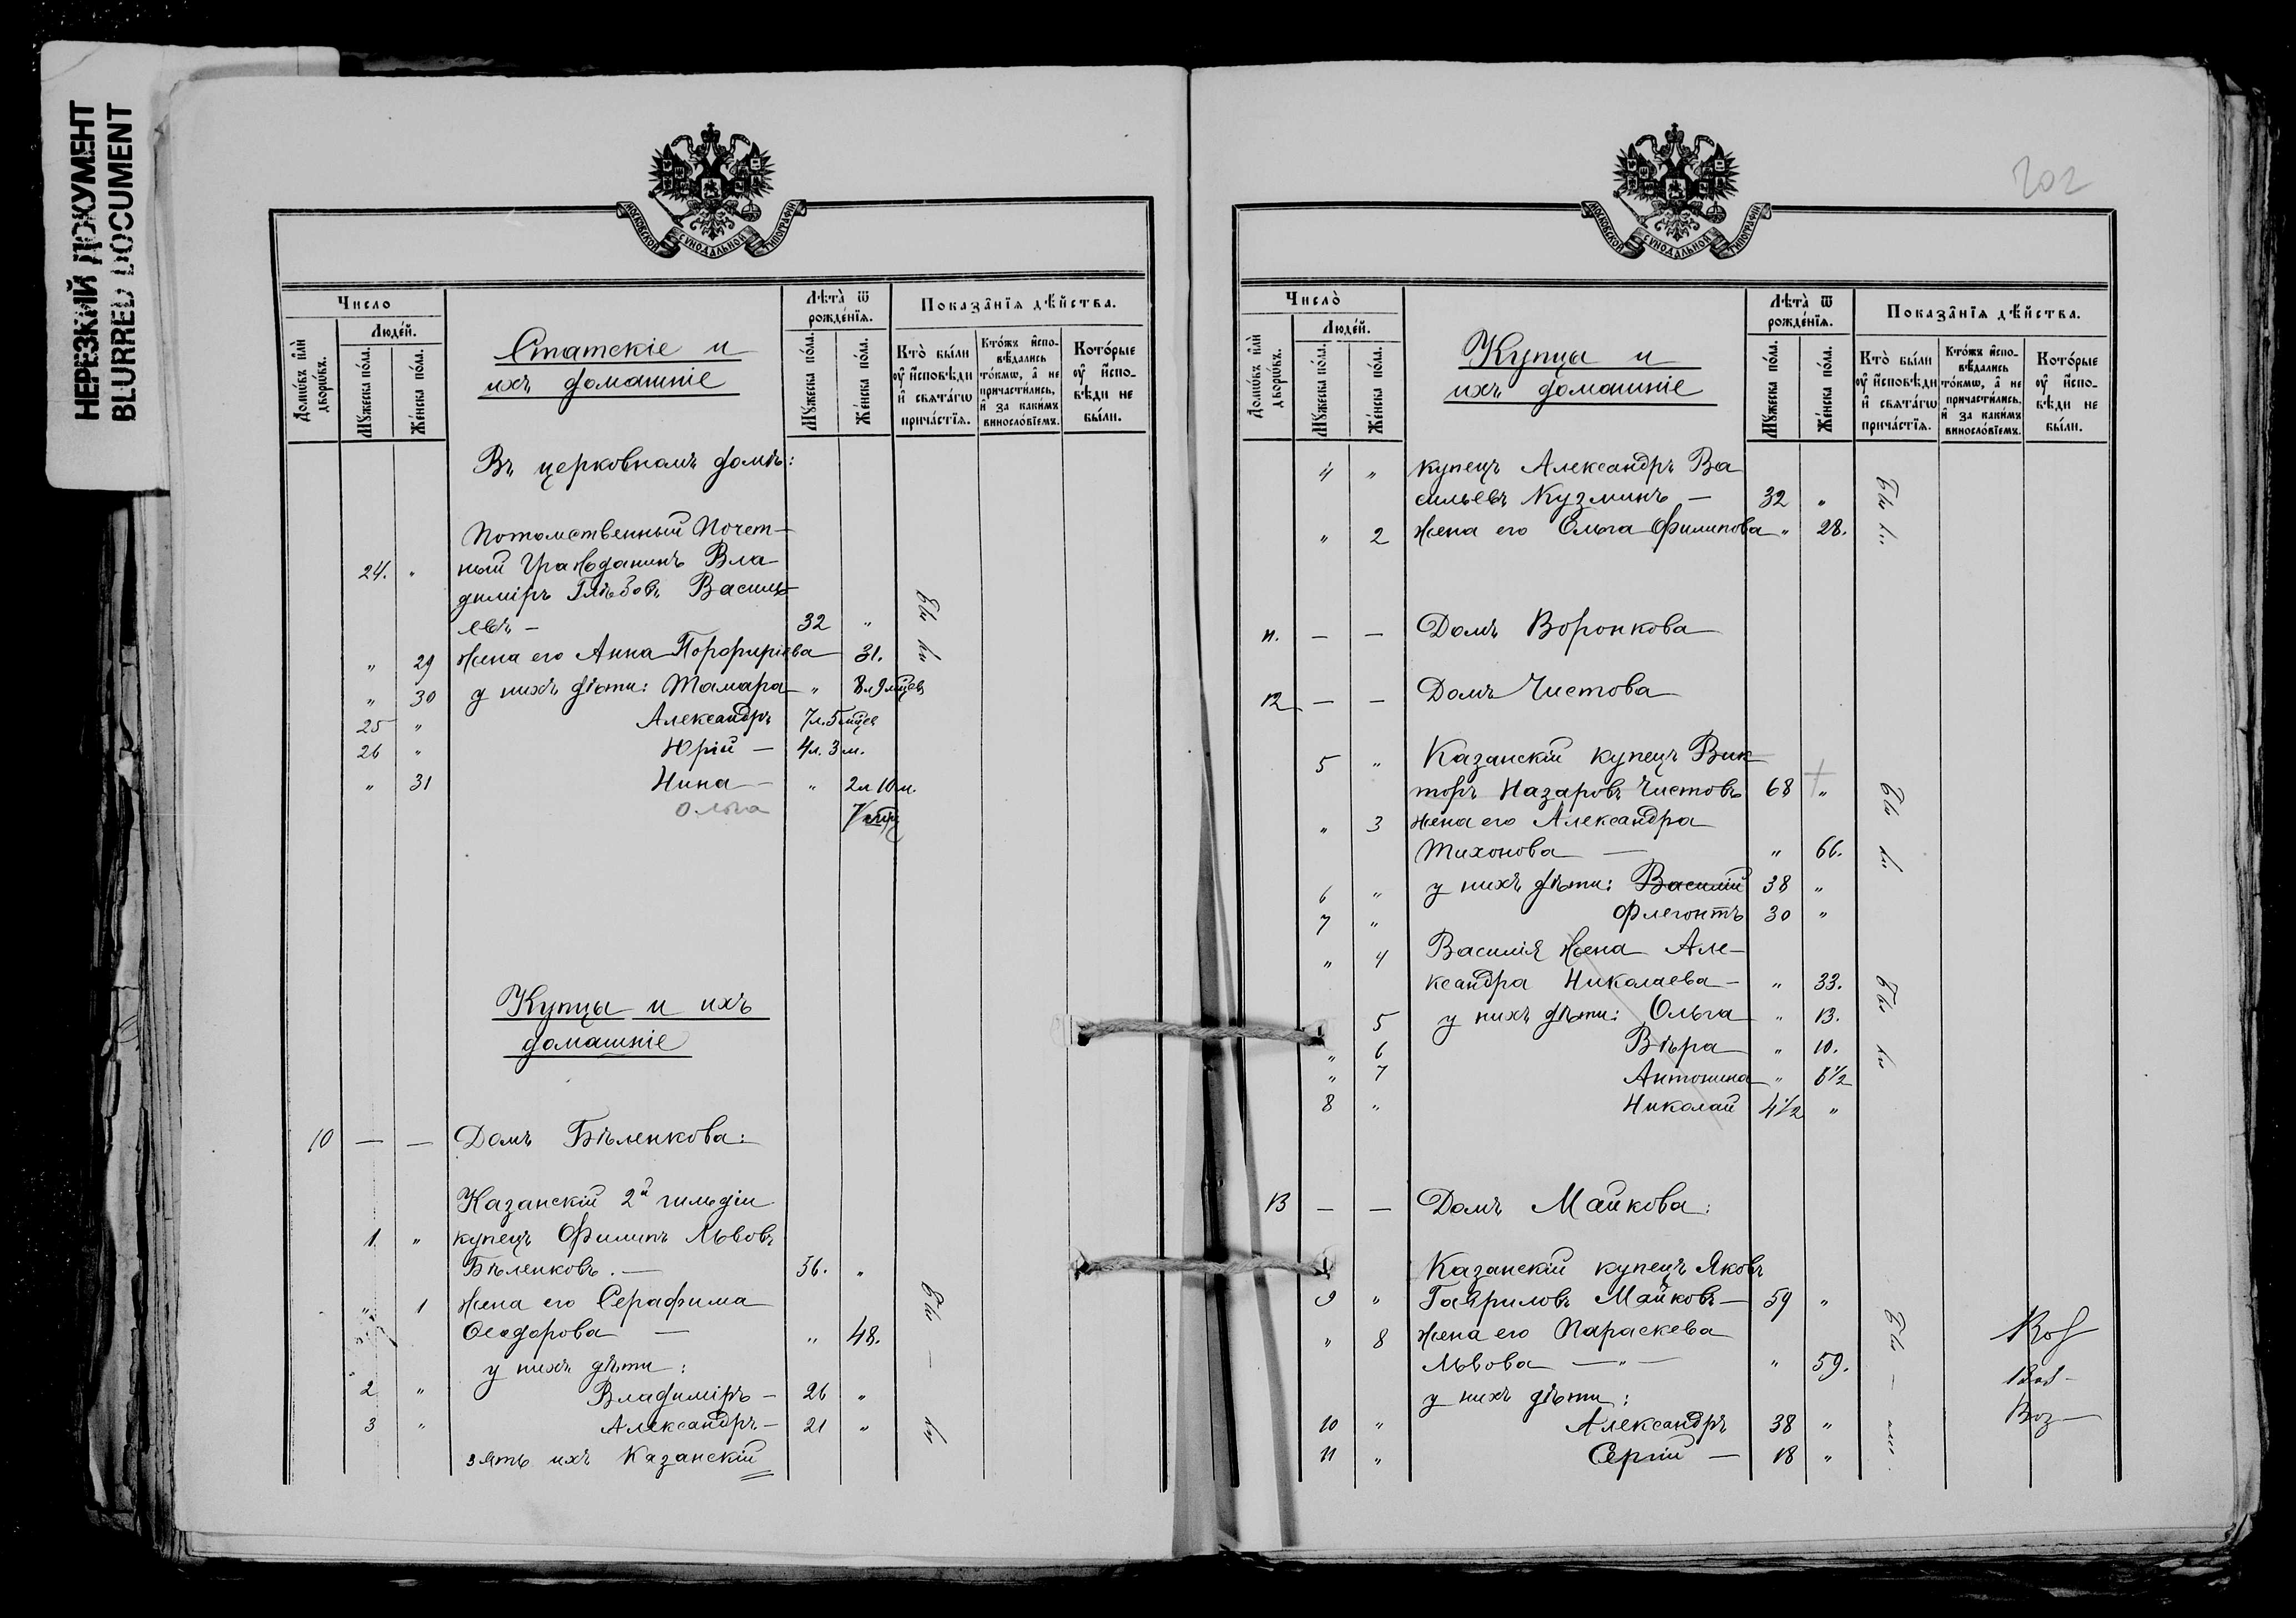 НЕРЕЗКИЙ ДОКУМЕНТ
BLURRED DOCUMENT
МОСКОВСКОЙ СѴНОДАЛЬНОЙ ТИПОГРАФІИ
Число
Людей.
Домѡвъ или дворѡвъ.
Мужеска пола.
Женска пола.
Статскіе и
ихъ домашніе
Лѣта ѿ рожденїя.
Мужеска пола.
Женска пола.
Показанїя дѣйства.
Кто были оу исповѣди и свѧтагѡ причастїя.
Ктожъ исповѣдались токмѡ, а не причастились, и за какимъ винословїемъ.
Которые оу исповѣди не были.
Въ церковномъ домѣ:
Потомственный Почет-
24. " ный Гражданинъ Вла
димiръ Глѣбовъ Василь-
евъ - 32 "
" 29 Жена его Анна Порфирiева 31.
" 30 у нихъ дѣти: Тамара " 8 л 9 мцев
25 " Александръ 7 л. 5 мцев
26 " Юрiй - 4 л. 3 м.
" 31 Нина - " 2 л 10 м.
Ольга
Были
Купцы и ихъ
домашніе
10 — — Домъ Бѣленкова:
Казанскiй 2й гильдiи
1 " купецъ Филипъ Львовъ
Бѣленковъ. — 56. "
" 1 Жена его Серафима
Ѳеодорова — " 48.
у нихъ дѣти:
2 " Владимiръ - 26 "
3 " Александръ - 21 "
зять ихъ Казанскiй
Бы — ли
202
МОСКОВСКОЙ СѴНОДАЛЬНОЙ ТИПОГРАФІИ
Число
Людей.
Домѡвъ или дворѡвъ.
Мужеска пола.
Женска пола.
Купцы и
ихъ домашніе
Лѣта ѿ рожденїя.
Мужеска пола.
Женска пола.
Показанїя дѣйства.
Кто были оу исповѣди и свѧтагѡ причастїя.
Ктожъ исповѣдались токмѡ, а не причастились, и за какимъ винословїемъ.
Которые оу исповѣди не были.
4 " купецъ Александръ Ва
сильевъ Кузминъ - 32 "
" 2 Жена его Ольга Филипова " 28.
Были
11. — — Домъ Воронкова
12 — — Домъ Чистова
5 " Казанскiй купецъ Вик
торъ Назаровъ Чистовъ 68 "
" 3 Жена его Александра
Тихонова — " 66.
6 " у нихъ дѣти: Василiй 38 "
7 " Флегонтъ 30 "
" 4 Василiя Жена Але-
ксандра Николаева - " 33.
5 у нихъ дѣти: Ольга " 13.
" 6 Вѣра " 10.
" 7 Антонина " 8 1/2
8 " Николай 4 1/2 "
Бы ли
Бы ли
13 — — Домъ Майкова:
Казанскiй купецъ Яковъ
9 " Гавриловъ Майковъ - 59 "
" 8 Жена его Параскева
Львова — " — " 59.
у нихъ дѣти:
10 " Александръ 38 "
11 " Сергiй - 18 "
Бы — ли